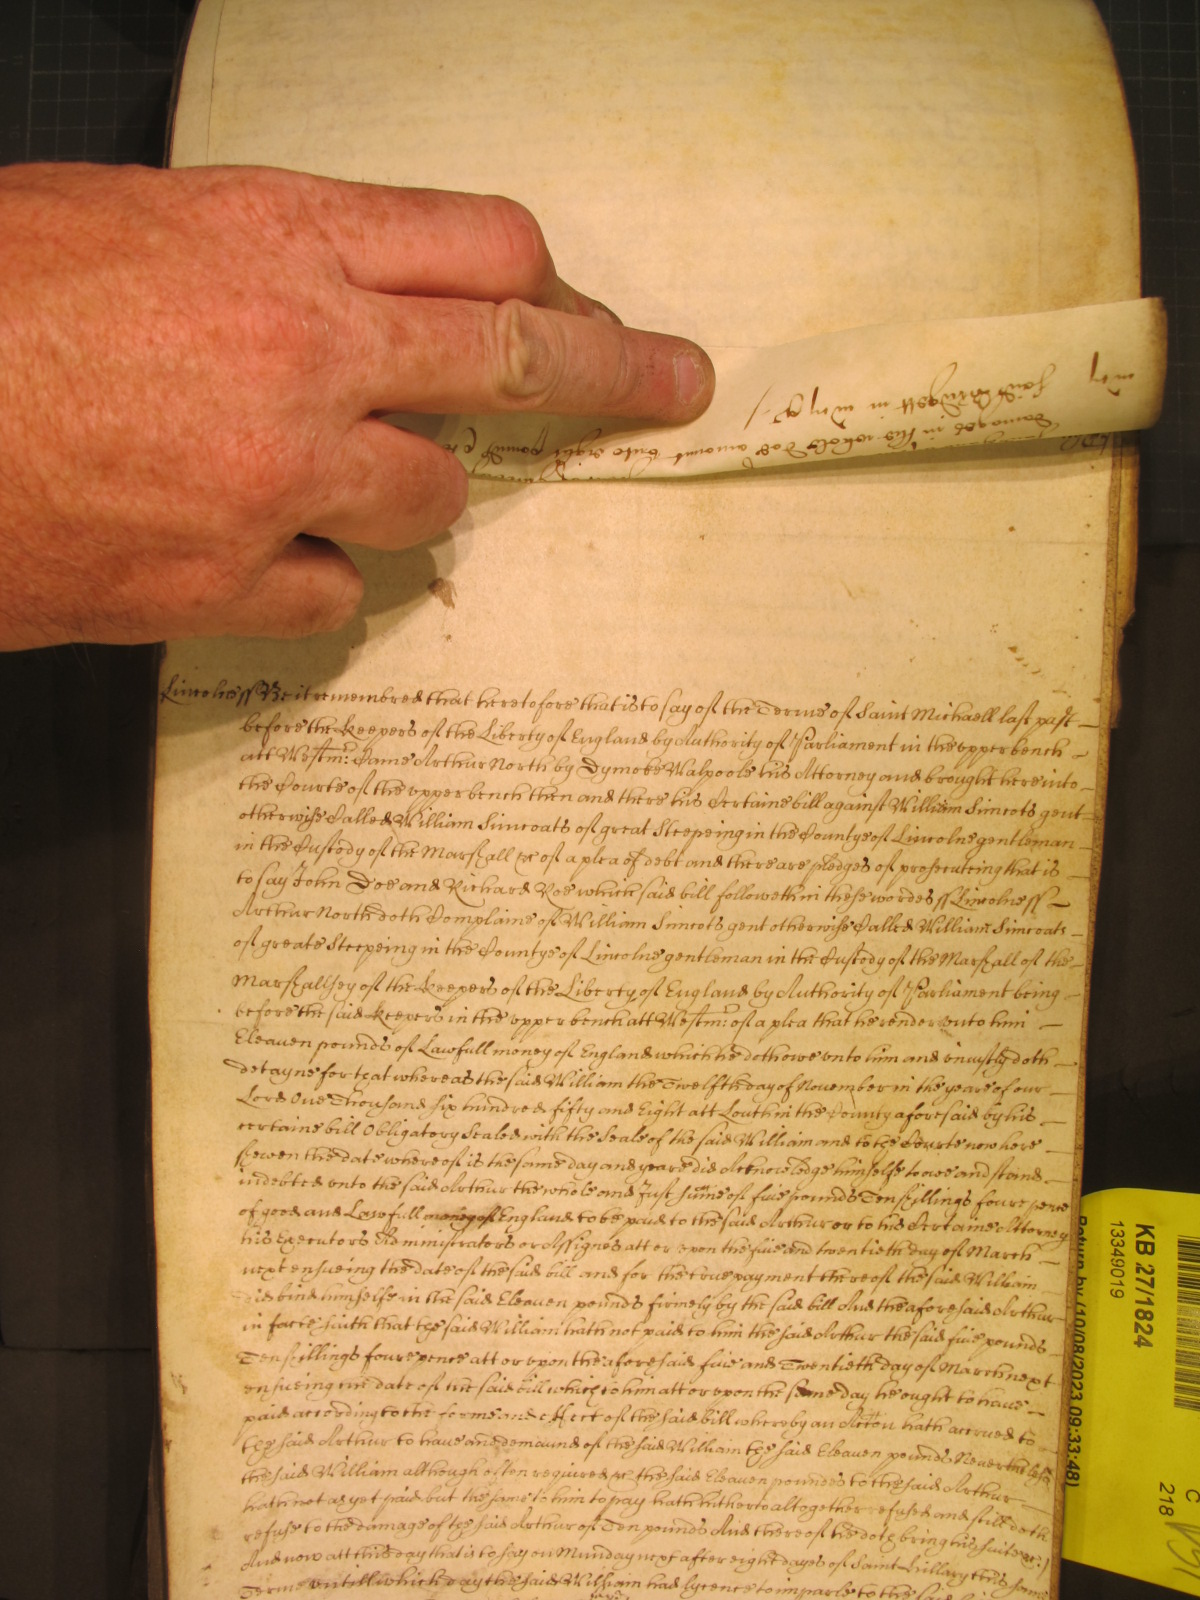 Lincolne ss Be it remembred that heretofore that is to say of the Terme of Saint Michaell last past
before the keepers of the Liberty of England by Authority of Parliament in the upper bench
att Westmr: Came Arthur North by Dymoke Walpoole his Attorney and brought here into
the Courte of the upper bench then and there his Certaine bill against William Simcots gent
otherwise Called William Simcoats of great Steepeing in the Countye of Lincolne gentleman
in the Custody of the Marshall &c of a plea of debt and there are pledges of prosecuting that is
to say John Doe and Richard Roe which said bill followeth in these wordes ss Lincolne ss
Arthur North doth Complaine of William Simcots gent otherwise Called William Simcoats
of greate Steepeing in the Countye of Lincolne gentleman in the Custody of the Marshall of the
Marshallsey of the keepers of the Liberty of England by Authority of Parliament being
before the said keepers in the upper bench att Westmr: of a plea that he render unto him
Eleaven pounds of Lawfull money of England which he doth owe unto him and uniustly doth
detayne for that whereas the said William the Twelfth day of November in the yeare of our
Lord One Thousand six hundred fifty and Eight att Louth in the County aforesaid by his
certaine bill Obligatory Sealed with the Seale of the said William and to the Courte now here
shewen the date whereof is the same day and yeare did Acknowledge himselfe to owe and stand
indebted unto the said Arthur the whole and Just sume of five pounds Ten shillings foure pence
of good and Lawfull money of England to be paid to the said Arthur or to his Certaine Attorney
his Executors Administrators or Assignes att or upon the five and twentieth day of March
next ensueing the date of the said bill and for the true payment thereof the said William
did bind himselfe in the said Eleaven pounds firmely by the said bill And the aforesaid Arthur
in facte saith that the said William hath not paid to him the said Arthur the said five pounds
Ten shillings foure pence att or upon the aforesaid five and Twentieth day of March next
ensueing the date of the said bill which to him att or upon the same day he ought to have
paid according to the forme and effect of the said bill whereby an Action hath accrued to
the said Arthur to have and demaund of the said William the said Eleaven pounds Neverthelesse
the said William although often required &c the said Eleaven poundes to the said Arthur
hath not as yet paid but the same to him to pay hath hitherto altogether refused and still doth
refuse to the damage of the said Arthur of Ten pounds And thereof he doth bring his suite &c:/
And now att this day that is to say on Munday next after eight dayes of Saint Hillary this same
Terme untill which day the said William had lycence to imparle to the said
KB 27/1824
13349019
Return by (10/08/2023 09:33:48)
C
218